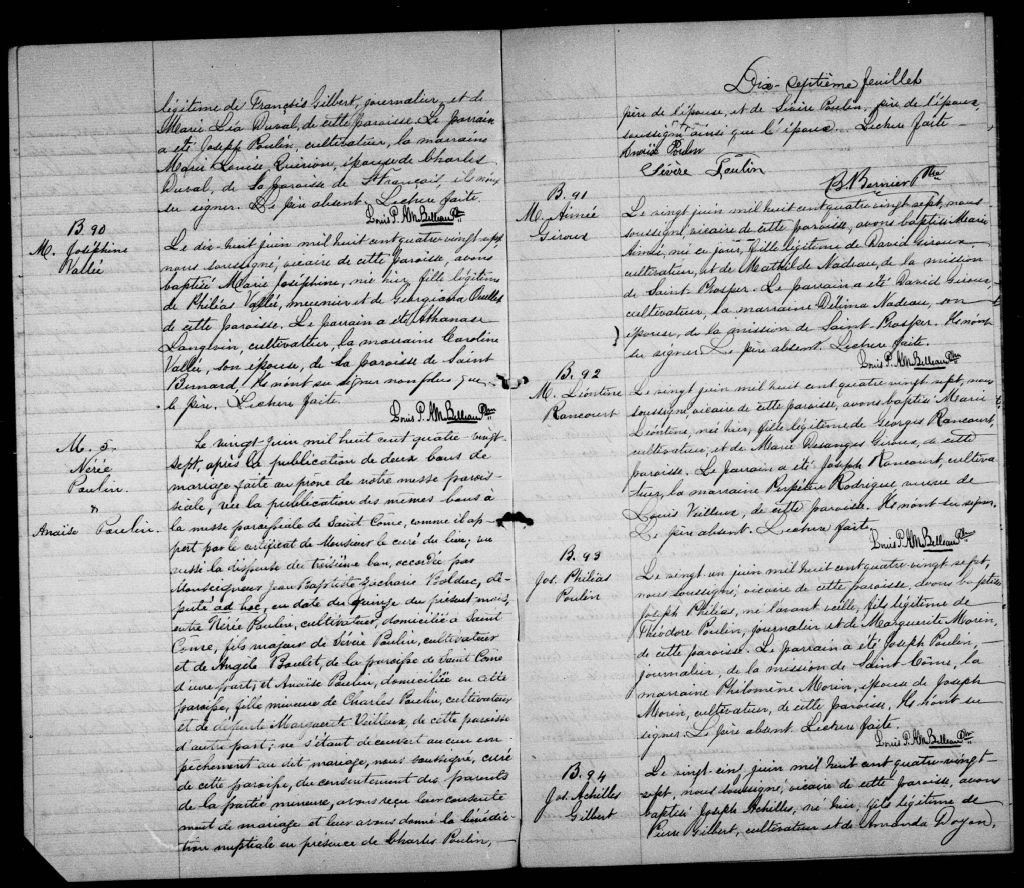 légitime de François Gilbert, journalier, et de
Marie Léa Duval, de cette paroisse. Le parrain
a été Joseph Poulin, cultivateur, la marraine
Marie Louise Quirion, épouse de Charles
Duval, de la paroisse de St François, ils n'ont
su signer. Le père absent. Lecture faite.
Louis P. A. M. Belleau Ptre
B 90
M. Joséphine
Vallée
Le dix-huit juin mil huit cent quatre-vingt sept,
nous soussigné, vicaire de cette paroisse, avons
baptisé Marie Joséphine, née hier, fille légitime
de Philias Vallée, meunier et de Georgianna Ouellet
de cette paroisse. Le parrain a été Athanase
Langlois, cultivateur, la marraine Caroline
Vallée, son épouse, de la paroisse de Saint
Bernard. Ils n'ont su signer non plus que
le père. Lecture faite.
Louis P. A. M. Belleau Ptre
M. 5.
Nérée
Poulin
"
Anaïse Poulin
Le vingt juin mil huit cent quatre vingt-
sept, après la publication de deux bans de
mariage faite au prone de notre messe parois-
siale, vu la publication des mêmes bans à
la messe paroissiale de Saint Come, comme il ap-
pert par le certificat de Monsieur le curé du lieu; vu
aussi la dispense du troisième ban, accordée par
Monseigneur Jean Baptiste Zacharie Bolduc, dé-
puté ad hoc, en date du quinze du présent mois,
entre Nérée Poulin, cultivateur, domicilié à Saint
Come, fils majeur de Sévère Poulin, cultivateur
et de Angèle Boulet, de la paroisse de Saint Come
d'une part; et Anaïse Poulin, domiciliée en cette
paroisse, fille mineure de Charles Poulin, cultivateur
et de défunte Marguerite Veilleux, de cette paroisse
d'autre part; ne s'étant découvert aucun em-
pêchement au dit mariage, nous soussigné, curé
de cette paroisse, du consentement des parents
de la partie mineure, avons reçu leur consente
ment de mariage et leur avons donné la bénédic-
tion nuptiale en présence de Charles Poulin,
Dix-septième feuillet
père de l'épouse, et de Sévère Poulin, père de l'époux,
soussigné ainsi que l'épouse. Lecture faite
Anaïse Poulin
Sévère Poulin
B. Bernier Ptre
B. 91
M. Aimée
Giroux
Le vingt juin mil huit cent quatre vingt sept, nous
soussigné, vicaire de cette paroisse, avons baptisé Marie
Aimée, née ce jour, fille légitime de David Giroux,
cultivateur, et de Mathilde Nadeau, de la mission
de Saint Prosper. Le parrain a été David Giroux
cultivateur, la marraine Délima Nadeau, son
épouse, de la mission de Saint Prosper. Ils n'ont
su signer. Le père absent. Lecture faite.
Louis P. A. M. Belleau Ptre
B. 92
M. Léontine
Rancourt
Le vingt juin mil huit cent quatre vingt sept, nous
soussigné, vicaire de cette paroisse, avons baptisé Marie
Léontine, née hier, fille légitime de Georges Rancourt,
cultivateur, et de Marie Desanges Giroux, de cette
paroisse. Le parrain a été Joseph Rancourt, cultiva-
teur, la marraine Perpétue Rodrigue veuve de
Louis Veilleux, de cette paroisse. Ils n'ont su signer.
Le père absent. Lecture faite.
Louis P. A. M. Belleau Ptre
B. 93
Jos. Philias
Poulin
Le vingt-un juin mil huit cent quatre-vingt sept,
nous soussigné, vicaire de cette paroisse, avons baptisé
Joseph Philias, né l'avant veille, fils légitime de
Théodore Poulin, journalier et de Marguerite Morin,
de cette paroisse. Le parrain a été Joseph Poulin,
journalier, de la mission de Saint Côme, la
marraine Philomène Morin, épouse de Joseph
Morin, cultivateur, de cette paroisse. Ils n'ont su
signer. Le père absent. Lecture faite.
Louis P. A. M. Belleau Ptre
B. 94
Jos. Achilles
Gilbert
Le vingt-cinq juin mil huit cent quatre-vingt-
sept, nous soussigné, vicaire de cette paroisse, avons
baptisé Joseph Achilles, né hier, fils légitime de
Pierre Gilbert, cultivateur et de Amanda Doyon,